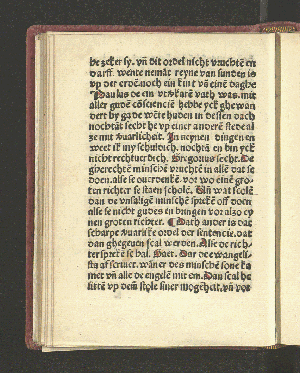 be zeker sy. vn̄ dit ordel nicht vruchtē en
darff. wente nemāt reyne van sunden is
vp der erdē noch ein kint vn̄ einē daghe
Paulus de ein vtvkarē vath was. mit
aller gudē cōsciencie hebbe yck ghe wan
dert by gade wēte huden in dessen dach
nochtās secht he vp einer anderē stede al
ze mit vaarlicheit. In neynen dingen en
weet ik my schuldich. nochtā en bin yck
nicht rechtuerdich. Gregorius secht. De
gherechte mīnschē vruchtē in allē dat se
doen. alse se ouerdenkē. vor wo einē gro
ten richter se staen scholē. Un̄ wat scolē
dan de vnsaligē minschē sprekē off doen
alse se nicht gudes en bringen vor alzo ey
nen groten richter. Dath ander is dat
scharpe vaarlike ordel der sentencie. dat
dan ghegeuen scal werden. Alse de rich-
ter sprekē se hal. Want. Dar de ewangeli-
sta af scriuet. wāner des minschē sone ka
met vn̄ alle de engelē mit em. Dan scal he
sittē vp dem stole siner mogēheit. vn̄ vor